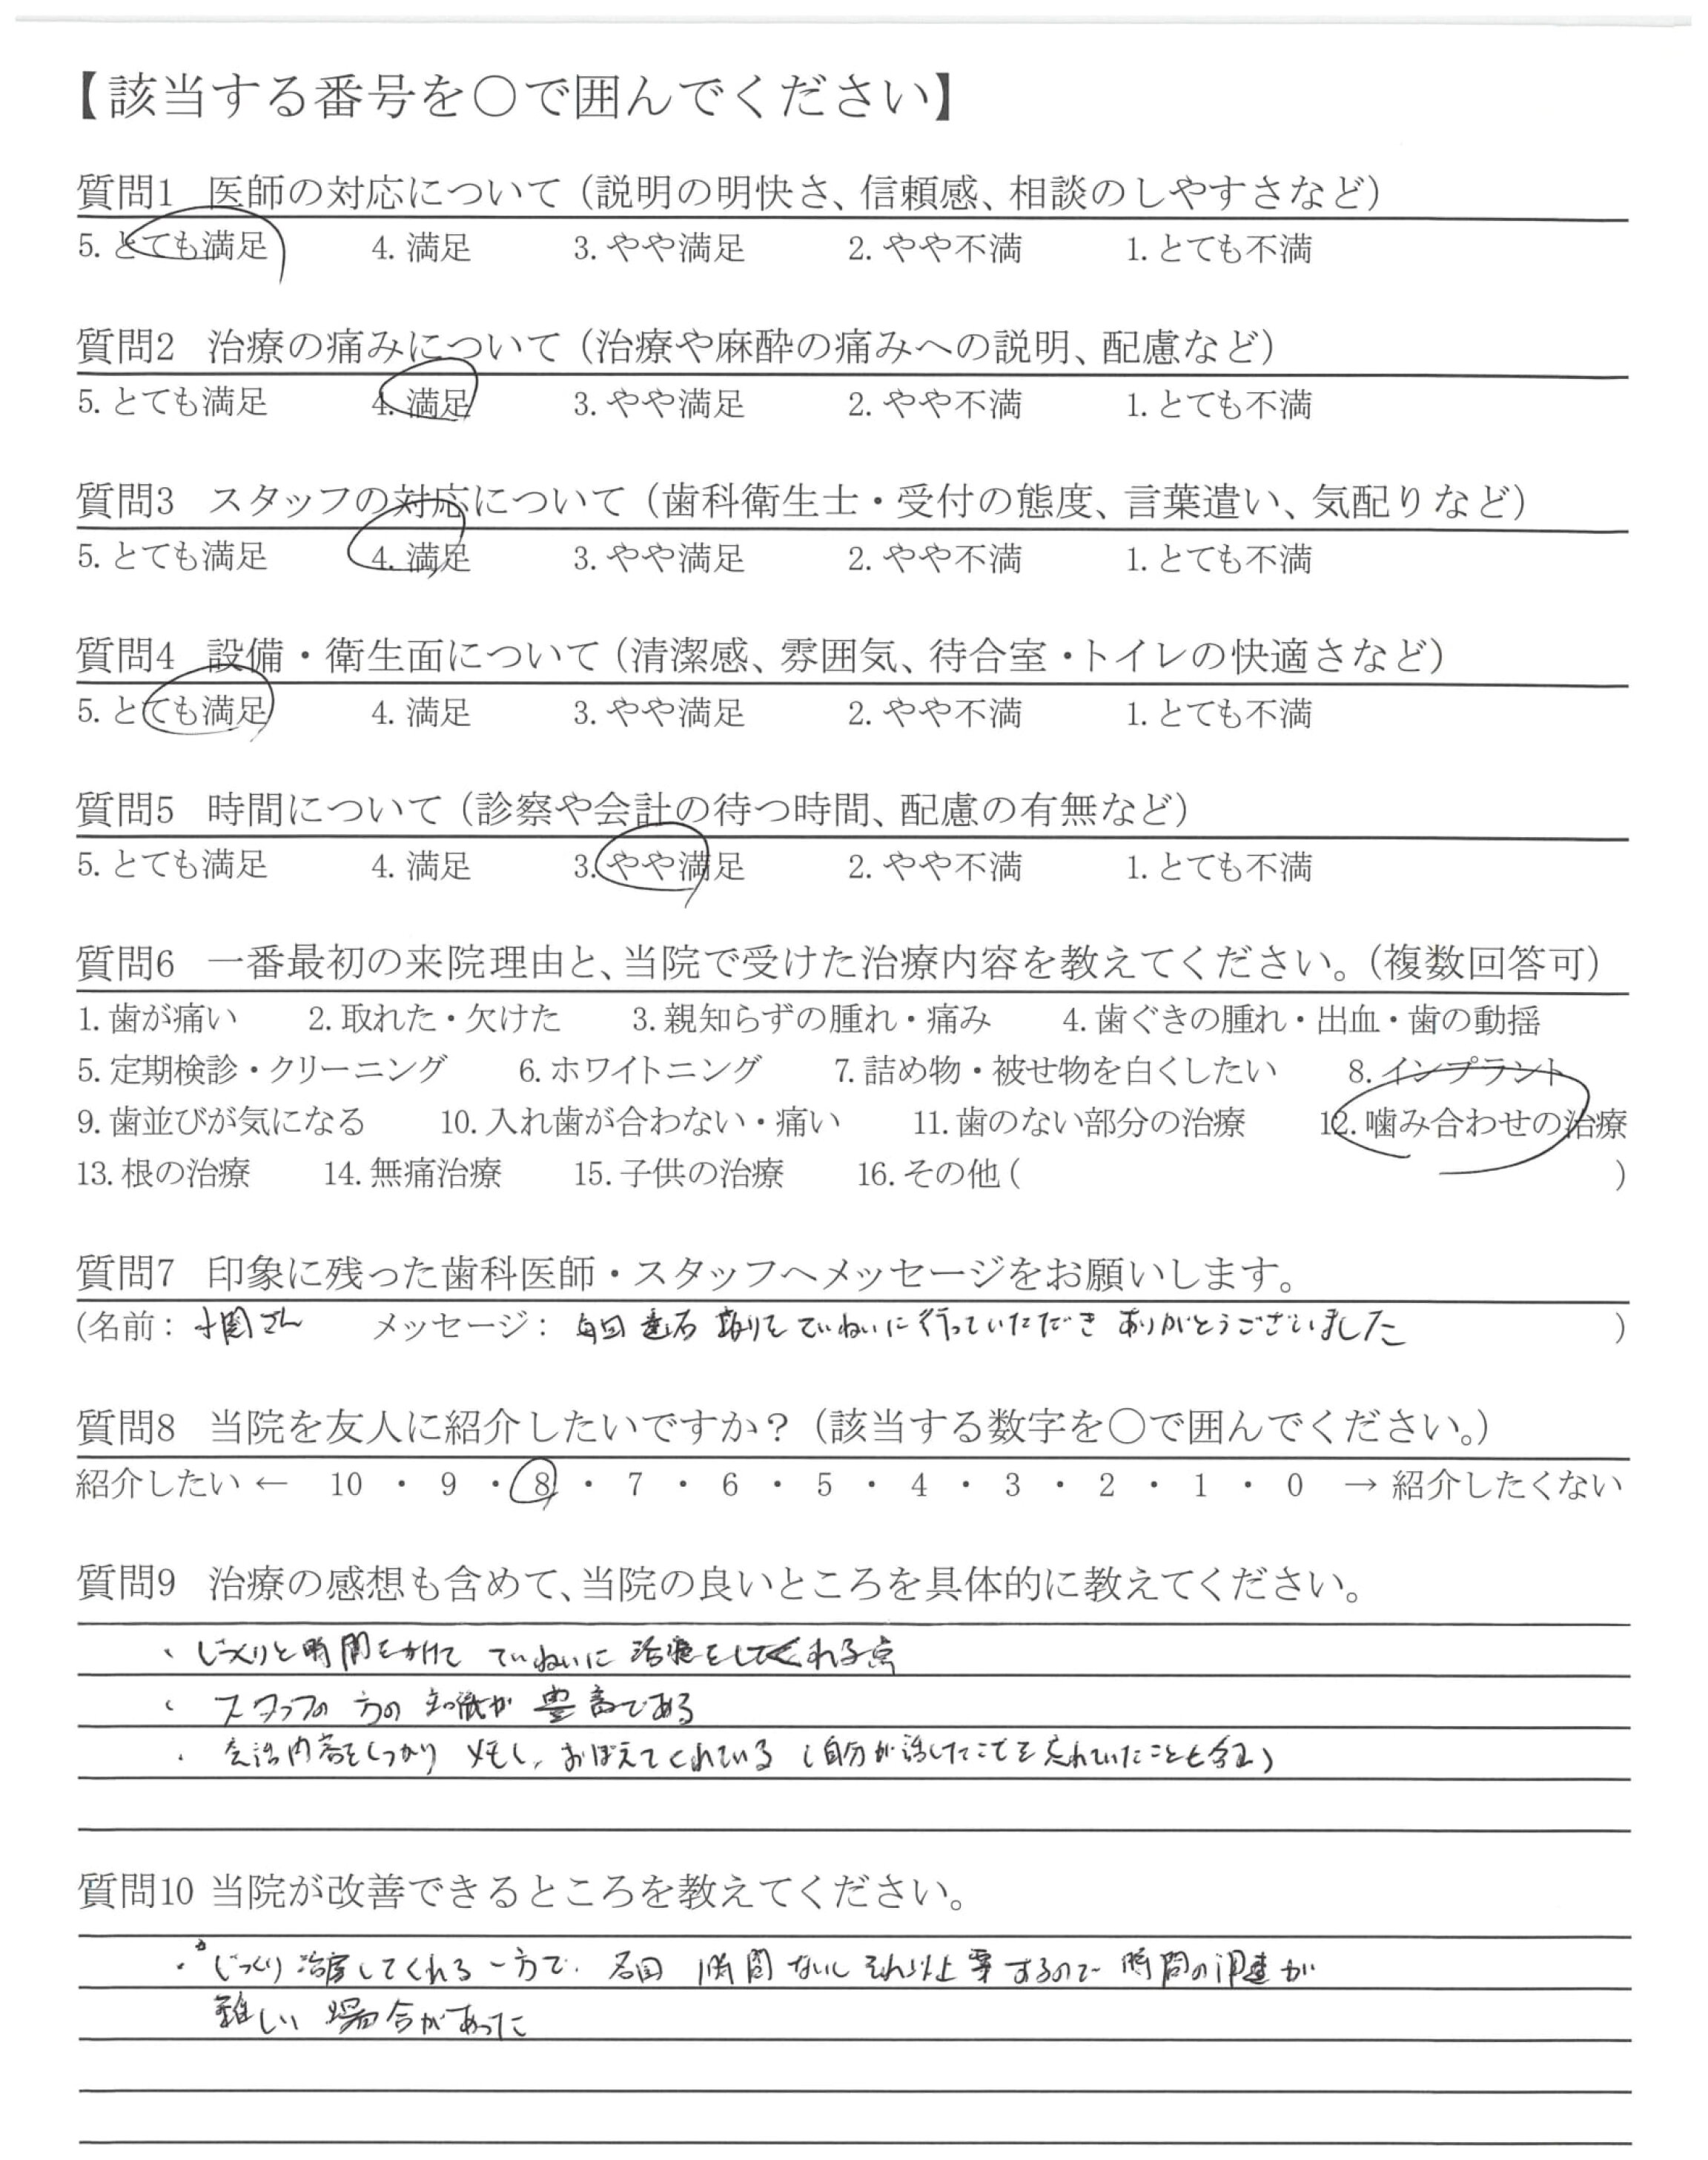 【該当する番号を○で囲んでください】
質問1 医師の対応について（説明の明快さ、信頼感、相談のしやすさなど）
5. とても満足 4. 満足 3. やや満足 2. やや不満 1. とても不満
質問2 治療の痛みについて（治療や麻酔の痛みへの説明、配慮など）
5. とても満足 4. 満足 3. やや満足 2. やや不満 1. とても不満
質問3 スタッフの対応について（歯科衛生士・受付の態度、言葉遣い、気配りなど）
5. とても満足 4. 満足 3. やや満足 2. やや不満 1. とても不満
質問4 設備・衛生面について（清潔感、雰囲気、待合室・トイレの快適さなど）
5. とても満足 4. 満足 3. やや満足 2. やや不満 1. とても不満
質問5 時間について（診察や会計の待つ時間、配慮の有無など）
5. とても満足 4. 満足 3. やや満足 2. やや不満 1. とても不満
質問6 一番最初の来院理由と、当院で受けた治療内容を教えてください。（複数回答可）
1. 歯が痛い 2. 取れた・欠けた 3. 親知らずの腫れ・痛み 4. 歯ぐきの腫れ・出血・歯の動揺
5. 定期検診・クリーニング 6. ホワイトニング 7. 詰め物・被せ物を白くしたい 8. インプラント
9. 歯並びが気になる 10. 入れ歯が合わない・痛い 11. 歯のない部分の治療 12. 噛み合わせの治療
13. 根の治療 14. 無痛治療 15. 子供の治療 16. その他（ ）
質問7 印象に残った歯科医師・スタッフへメッセージをお願いします。
（名前： さん メッセージ： 毎回 歯石 取りを ていねいに 行っていただき ありがとうございました ）
質問8 当院を友人に紹介したいですか？（該当する数字を○で囲んでください。）
紹介したい ← 10 ・ 9 ・ 8 ・ 7 ・ 6 ・ 5 ・ 4 ・ 3 ・ 2 ・ 1 ・ 0 → 紹介したくない
質問9 治療の感想も含めて、当院の良いところを具体的に教えてください。
・じっくりと時間をかけて ていねいに 治療をしてくれる点
・スタッフの 方の 知識が 豊富である
・会話内容をしっかり メモし、おぼえてくれている（自分が話したことを忘れていたことも含む）
質問10 当院が改善できるところを教えてください。
・じっくり 治療してくれる 一方で、 毎回 1時間 ないし それ以上 要するので 時間の調達が
難しい 場合があった